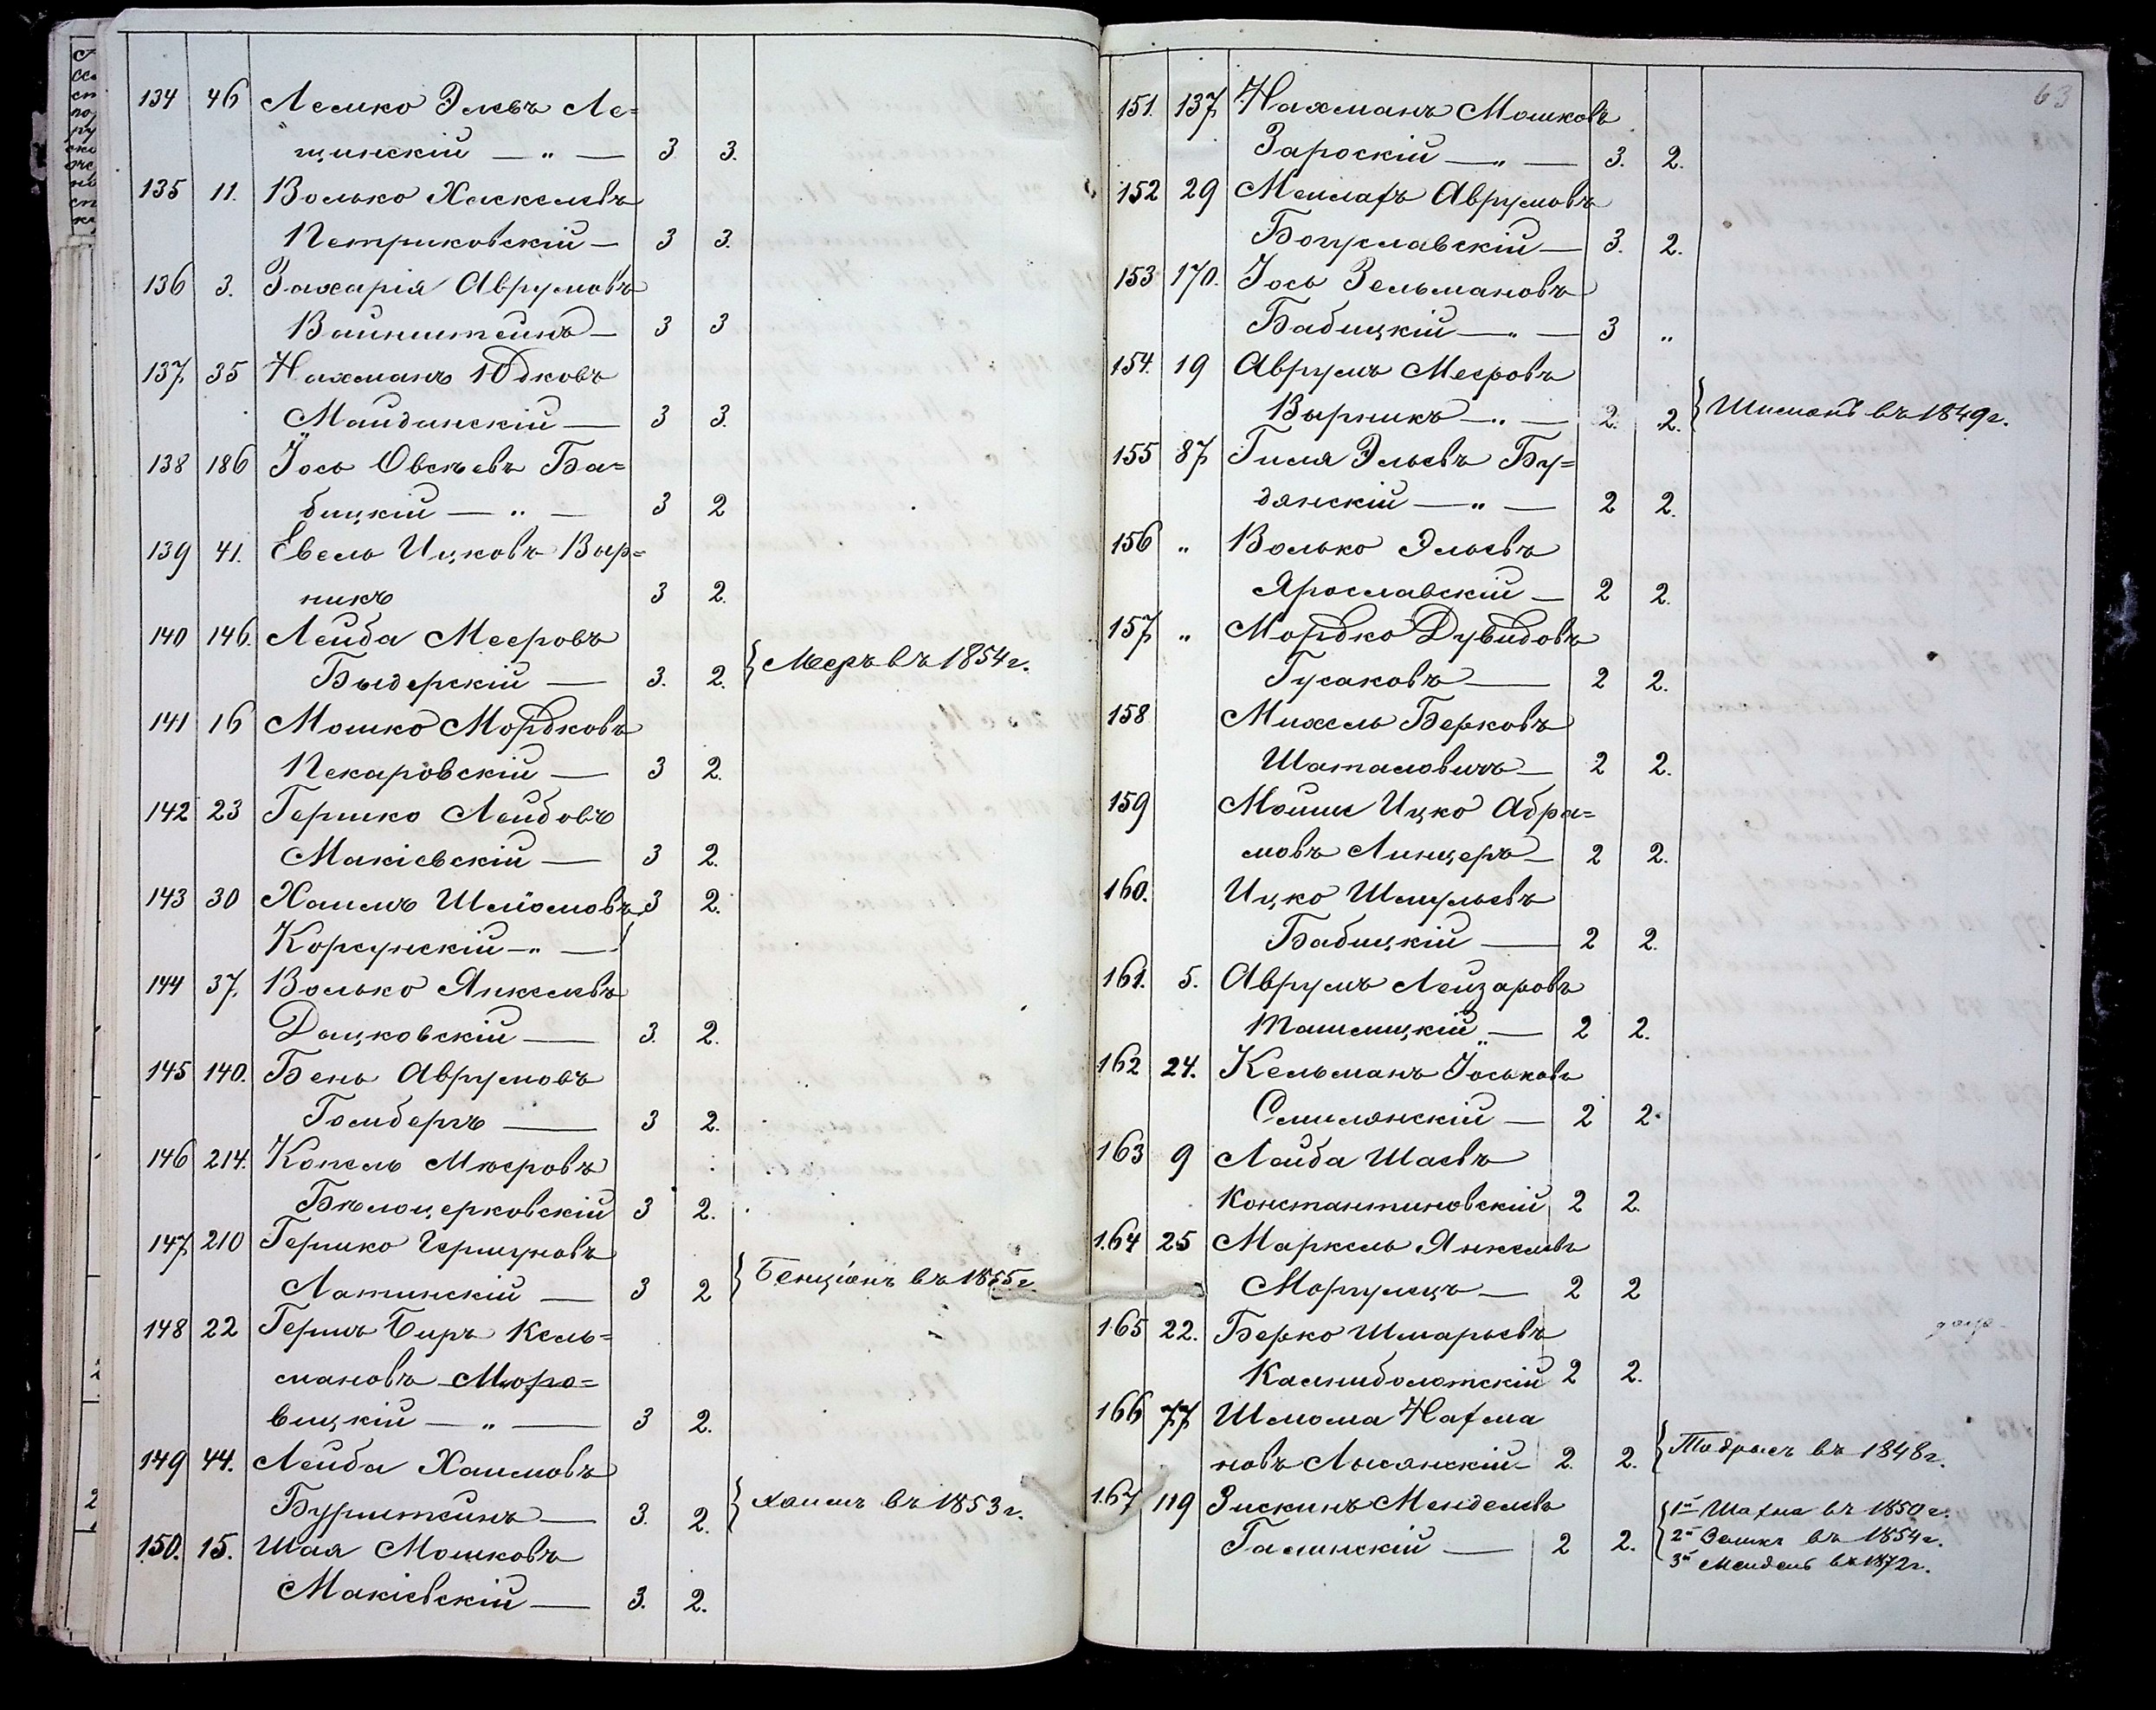 134 46 Лемко Элевъ Ле=
щинскій — „ — 3 3.
135 11. Волько Хаскелевъ
Петриковскій — 3 3.
136 3. Захарія Аврумовъ
Вайнштейнъ — 3 3
137 35 Нахманъ Юдковъ
Майданскій — 3 3.
138 186 Іось Овсѣевъ Ба=
бицкій — „ — 3 2
139 41. Евель Ицковъ Выр=
никъ 3 2.
140 146. Лейба Мееровъ
Быдерскій — 3. 2. } Меръ въ 1854 г.
141 16 Мошко Мордковъ
Пекаровскій — 3 2.
142 23 Гершко Лейбовъ
Макіевскій — 3 2.
143 30 Хаимъ Шліомовъ 3 2.
Корсунскій — „ —
144 37. Волько Янкелевъ
Дацковскій — 3. 2.
145 140. Бень Аврумовъ
Гомбергъ — 3 2.
146 214. Копель Мѣеровъ
Бѣлоцерковскій 3 2.
147 210 Гершко Гершуновъ
Латинскій — 3 2 } Бенціонъ въ 1855 г.
148 22 Гершъ Беръ Кель=
мановъ Моро=
вицкій — „ — 3 2.
149 44. Лейба Хаимовъ
Бурштейнъ — 3. 2. } Хаимъ въ 1853 г.
150. 15. Шая Мошковъ
Макіевскій — 3. 2.
63
151. 137 Нахманъ Мошковъ
Зароскій — „ — 3. 2.
152 29 Мейлахъ Аврумовъ
Богуславскій — 3. 2.
153 170. Іось Зельмановъ
Бабицкій — „ — 3 „
154. 19 Аврумъ Мееровъ
Вырникъ — „ — 2. 2. } Шимонъ въ 1849 г.
155 87 Гиля Эльевъ Бу=
дянскій — „ — 2 2.
156 „ Волько Эльевъ
Ярославскій — 2 2.
157 „ Мордко Дувидовъ
Гусаковъ — 2 2.
158 Михель Берковъ
Шаталовичъ — 2 2.
159 Мойши Ицко Абра=
мовъ Линцеръ — 2 2.
160. Ицко Шмульевъ
Бабицкій — 2 2.
161. 5. Аврумъ Лейзаровъ
Ташлицкій — 2 2.
162 24. Кельманъ Іоськовъ
Смилянскій — 2 2.
163 9 Лейба Шаевъ
Константиновскій 2 2.
164 25 Маркель Янкелевъ
Моргулецъ — 2 2
165 22. Берко Шмарьевъ
Калниболотскій 2 2.
166 77 Шлиома Нахма
новъ Лысянскій — 2. 2. } Тодрысъ въ 1848 г.
167 119 Зискинъ Менделевъ } 1й Шахна въ 1850 г.
Галинскій — 2 2. 2й Зелик въ 1854 г.
3й Мендель въ 1872 г.